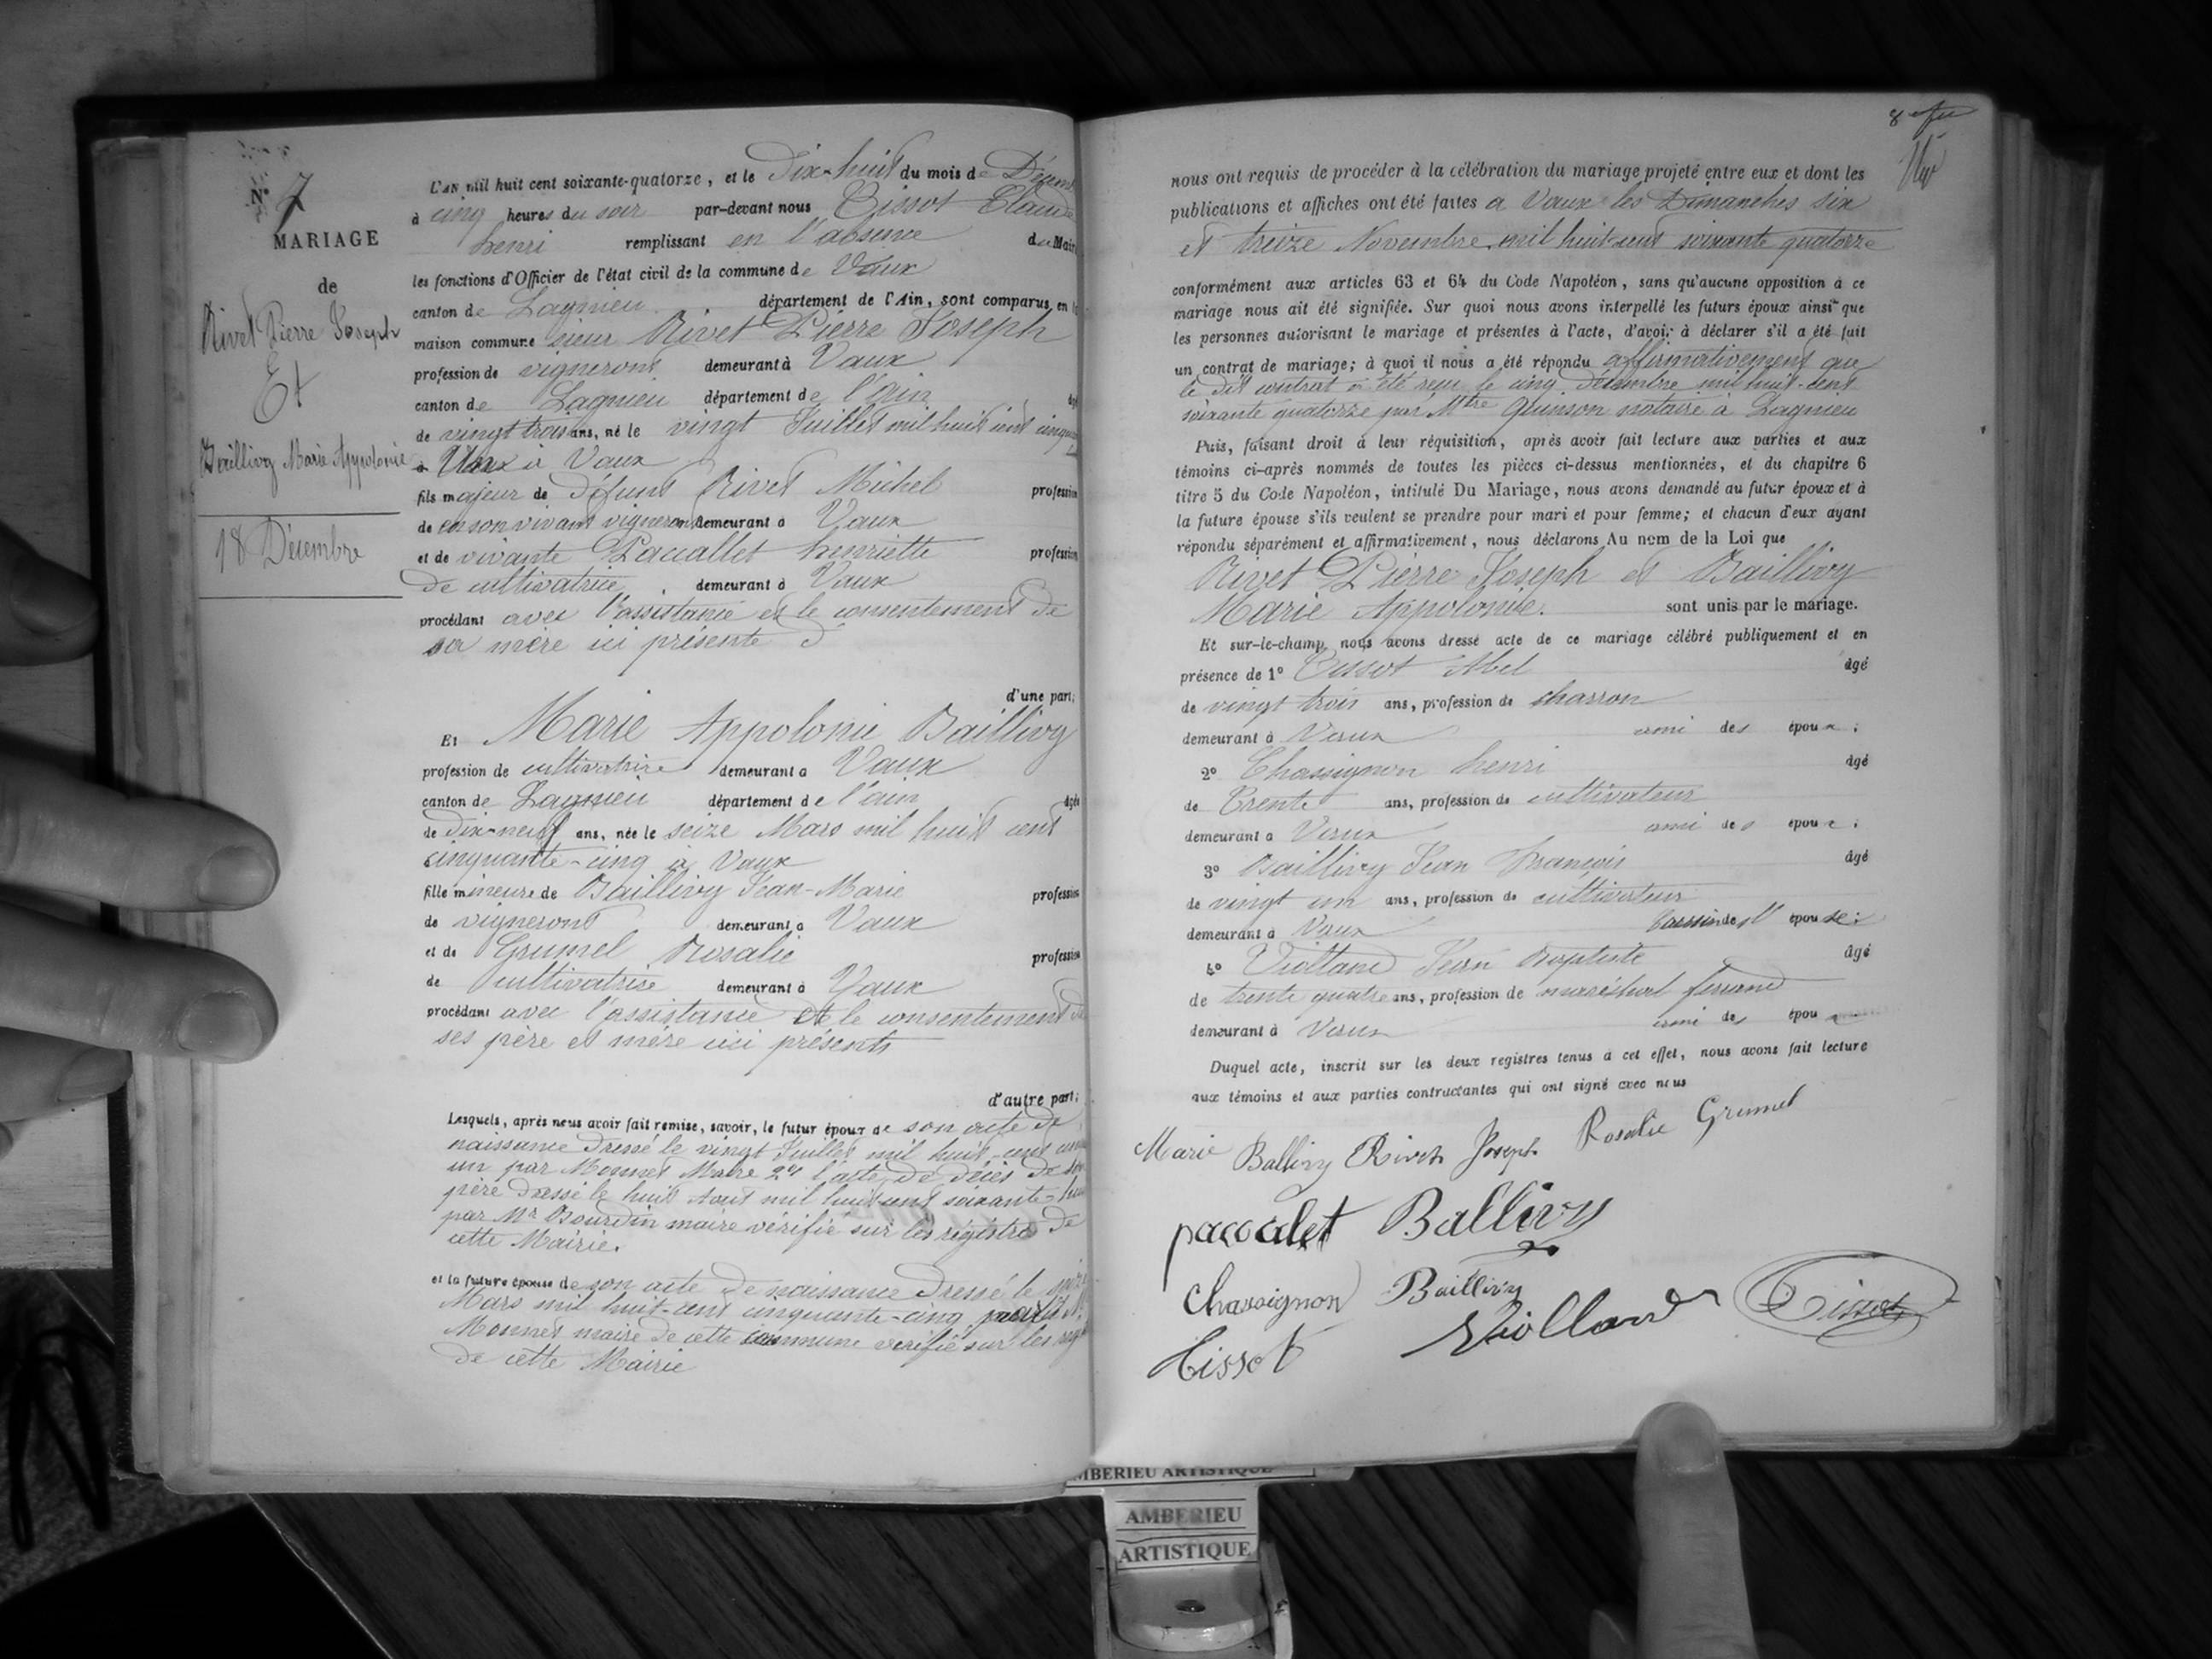 N° 7
MARIAGE
de
Rivet Pierre Joseph
Et
Baillivy Marie Appolonie
18 Décembre
L'AN mil huit cent soixante-quatorze, et le Dix-huit du mois de Décem
à cinq heures du soir par-devant nous Tissot Claude
henri remplissant en l'absence du Maire
les fonctions d'Officier de l'état civil de la commune de Vaux
canton de Lagnieu département de l'Ain, sont comparus en la
maison commune sieur Rivet Pierre Joseph
profession de vigneron demeurant à Vaux
canton de Lagnieu département de l'ain âgé
de vingt trois ans, né le vingt Juillet mil huit cent cinquan
à Vaux
fils majeur de défunt Rivet Michel profession
de en son vivant vigneron demeurant à Vaux
et de vivante Paccallet henriette profession
de cultivatrice demeurant à Vaux
procédant avec l'assistance et le consentement de
sa mère ici présente
d'une part;
Et Marie Appolonie Baillivy
profession de cultivatrice demeurant à Vaux
canton de Lagnieu département de l'ain âgée
de dix-neuf ans, née le seize Mars mil huit cent
cinquante-cinq à Vaux
fille mineure de Baillivy Jean-Marie profession
de vigneron demeurant à Vaux
et de Grumel Rosalie profession
de cultivatrice demeurant à Vaux
procédant avec l'assistance et le consentement de
ses père et mère ici présents
d'autre part;
Lesquels, après nous avoir fait remise, savoir, le futur époux de son acte de
naissance dressé le vingt Juillet mil huit-cent
un par Monnet Maire 2° l'acte de décès de son
père dressé le huit Aout mil huit cent soixante
par Mr Bourdin maire vérifié sur les régistres de
cette Mairie.
et la future épouse de son acte de naissance dressé le seize
Mars mil huit-cent cinquante-cinq par
Monnet maire de cette commune vérifié sur les reg
de cette Mairie
8
nous ont requis de procéder à la célébration du mariage projeté entre eux et dont les
publications et affiches ont été faites à Vaux les Dimanches six
et treize Novembre mil huit cent soixante quatorze
conformément aux articles 63 et 64 du Code Napoléon, sans qu'aucune opposition à ce
mariage nous ait été signifiée. Sur quoi nous avons interpellé les futurs époux ainsi que
les personnes autorisant le mariage et présentes à l'acte, d'avoir à déclarer s'il a été fait
un contrat de mariage; à quoi il nous a été répondu affirmativement que
le dit contrat a été reçu le cinq décembre mil huit-cent
soixante quatorze par Mtre Quinson notaire à Lagnieu
Puis, faisant droit à leur réquisition, après avoir fait lecture aux parties et aux
témoins ci-après nommés de toutes les pièces ci-dessus mentionnées, et du chapitre 6
titre 5 du Code Napoléon, intitulé Du Mariage, nous avons demandé au futur époux et à
la future épouse s'ils veulent se prendre pour mari et pour femme; et chacun d'eux ayant
répondu séparément et affirmativement, nous déclarons Au nom de la Loi que
Rivet Pierre Joseph et Baillivy
Marie Appolonie. sont unis par le mariage.
Et sur-le-champ nous avons dressé acte de ce mariage célébré publiquement et en
présence de 1° Tissot Abel âgé
de vingt trois ans, profession de charron
demeurant à Vaux ami des époux;
2° Chassignon henri âgé
de Trente ans, profession de cultivateur
demeurant à Vaux ami des époux;
3° Baillivy Jean François âgé
de vingt un ans, profession de cultivateur
demeurant à Vaux cousin de l'épouse;
4° Violland Jean Baptiste âgé
de trente quatre ans, profession de maréchal ferrand
demeurant à Vaux ami des époux
Duquel acte, inscrit sur les deux registres tenus à cet effet, nous avons fait lecture
aux témoins et aux parties contractantes qui ont signé avec nous
Marie Ballivy Rivet Joseph Rosalie Grumel
paccalet Ballivy
Chassignon Baillivy
Tissot Violland Tissot
MBERIEU ARTISTIQUE
AMBERIEU
ARTISTIQUE